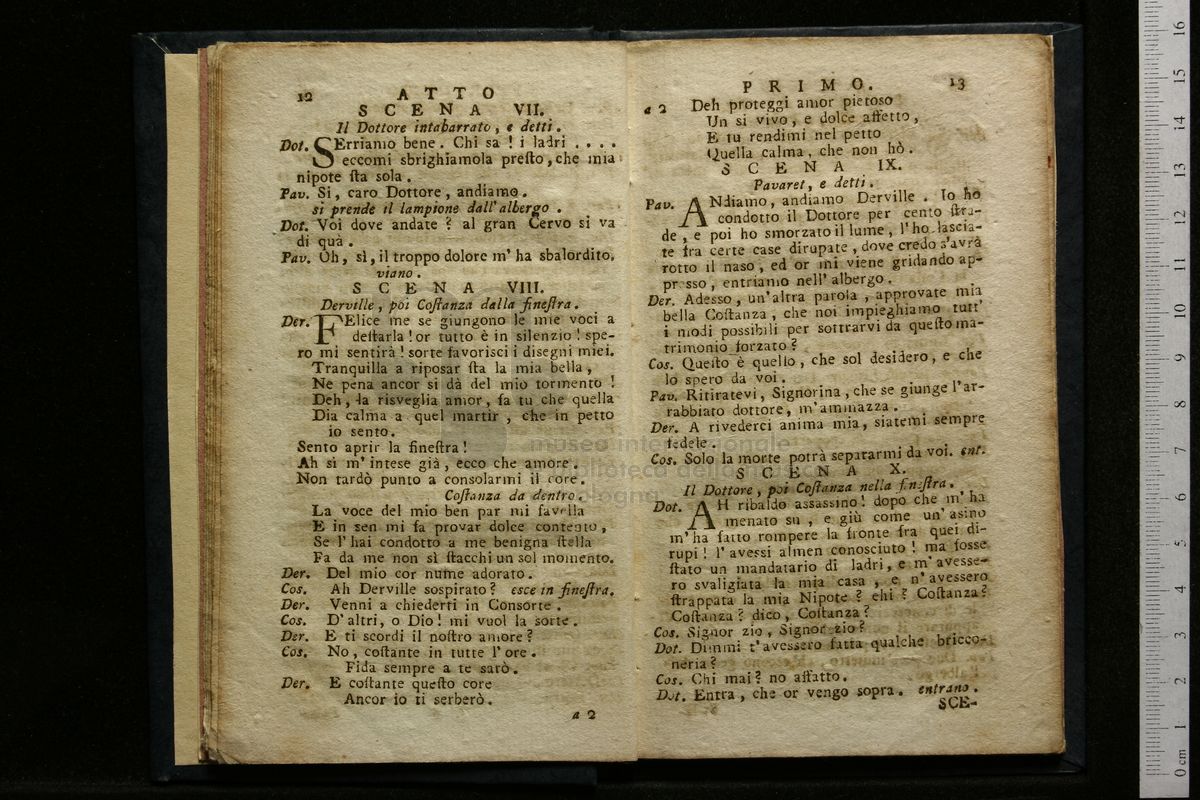 12 ATTO
SCENA VII.
Il Dottore intabarrato, e detti.
Dot. SErriamo bene. Chi sa! i ladri ....
eccomi sbrighiamola preſto, che mia
nipote ſta sola.
Pav. Si, caro Dottore, andiamo.
si prende il lampione dall'albergo.
Dot. Voi dove andate? al gran Cervo si va
di quà.
Pav. Oh, sì, il troppo dolore m'ha sbalordito.
viano.
SCENA VIII.
Derville, poi Coſtanza dalla fineſtra.
Der. FElice me se giungono le mie voci a
deſtarla! or tutto è in silenzio! spe-
ro mi sentirà! sorte favorisci i disegni miei.
Tranquilla a riposar ſta la mia bella,
Ne pena ancor si dà del mio tormento!
Deh, la risveglia amor, fa tu che quella
Dia calma a quel martir, che in petto
io sento.
Sento aprir la fineſtra!
Ah si m'intese già, ecco che amore.
Non tardò punto a consolarmi il core.
Coſtanza da dentro.
La voce del mio ben par mi favella
E in sen mi fa provar dolce contento,
Se l'hai condotto a me benigna ſtella
Fa da me non sì ſtacchi un sol momento.
Der. Del mio cor nume adorato.
Cos. Ah Derville sospirato? esce in fineſtra.
Der. Venni a chiederti in Consorte.
Cos. D'altri, o Dio! mi vuol la sorte.
Der. E ti scordi il noſtro amore?
Cos. No, coſtante in tutte l'ore.
Fida sempre a te sarò.
Der. E coſtante queſto core
Ancor io ti serberò.
a 2
PRIMO. 13
a 2 Deh proteggi amor pietoso
Un si vivo, e dolce affetto,
E tu rendimi nel petto
Quella calma, che non hò.
SCENA IX.
Pavaret, e detti.
Pav. ANdiamo, andiamo Derville. Io ho
condotto il Dottore per cento ſtra-
de, e poi ho smorzato il lume, l'ho lascia-
te fra certe case dirupate, dove credo s'avrà
rotto il naso, ed or mi viene gridando ap-
presso, entriamo nell'albergo.
Der. Adesso, un'altra parola, approvate mia
bella Coſtanza, che noi impieghiamo tutt'
i modi possibili per sottrarvi da queſto ma-
trimonio forzato?
Cos. Queſto è quello, che sol desidero, e che
lo spero da voi.
Pav. Ritiratevi, Signorina, che se giunge l'ar-
rabbiato dottore, m'ammazza.
Der. A rivederci anima mia, siatemi sempre
fedele.
Cos. Solo la morte potrà separarmi da voi. ent.
SCENA X.
Il Dottore, poi Coſtanza nella fineſtra.
Dot. AH ribaldo assassino! dopo che m'ha
menato su, e giù come un'asino
m'ha fatto rompere la fronte fra quei di-
rupi! l'avessi almen conosciuto! ma fosse
ſtato un mandatario di ladri, e m'avesse-
ro svaligiata la mia casa, e n'avessero
ſtrappata la mia Nipote? ehi? Coſtanza?
Coſtanza? dico, Coſtanza?
Cos. Signor zio, Signor zio?
Dot. Dimmi t'avessero fatta qualche bricco-
neria?
Cos. Chi mai? no affatto.
Dot. Entra, che or vengo sopra. entrano.
SCE-
museo internazionale
biblioteca della musica
bologna
0 cm 1 2 3 4 5 6 7 8 9 10 11 12 13 14 15 16